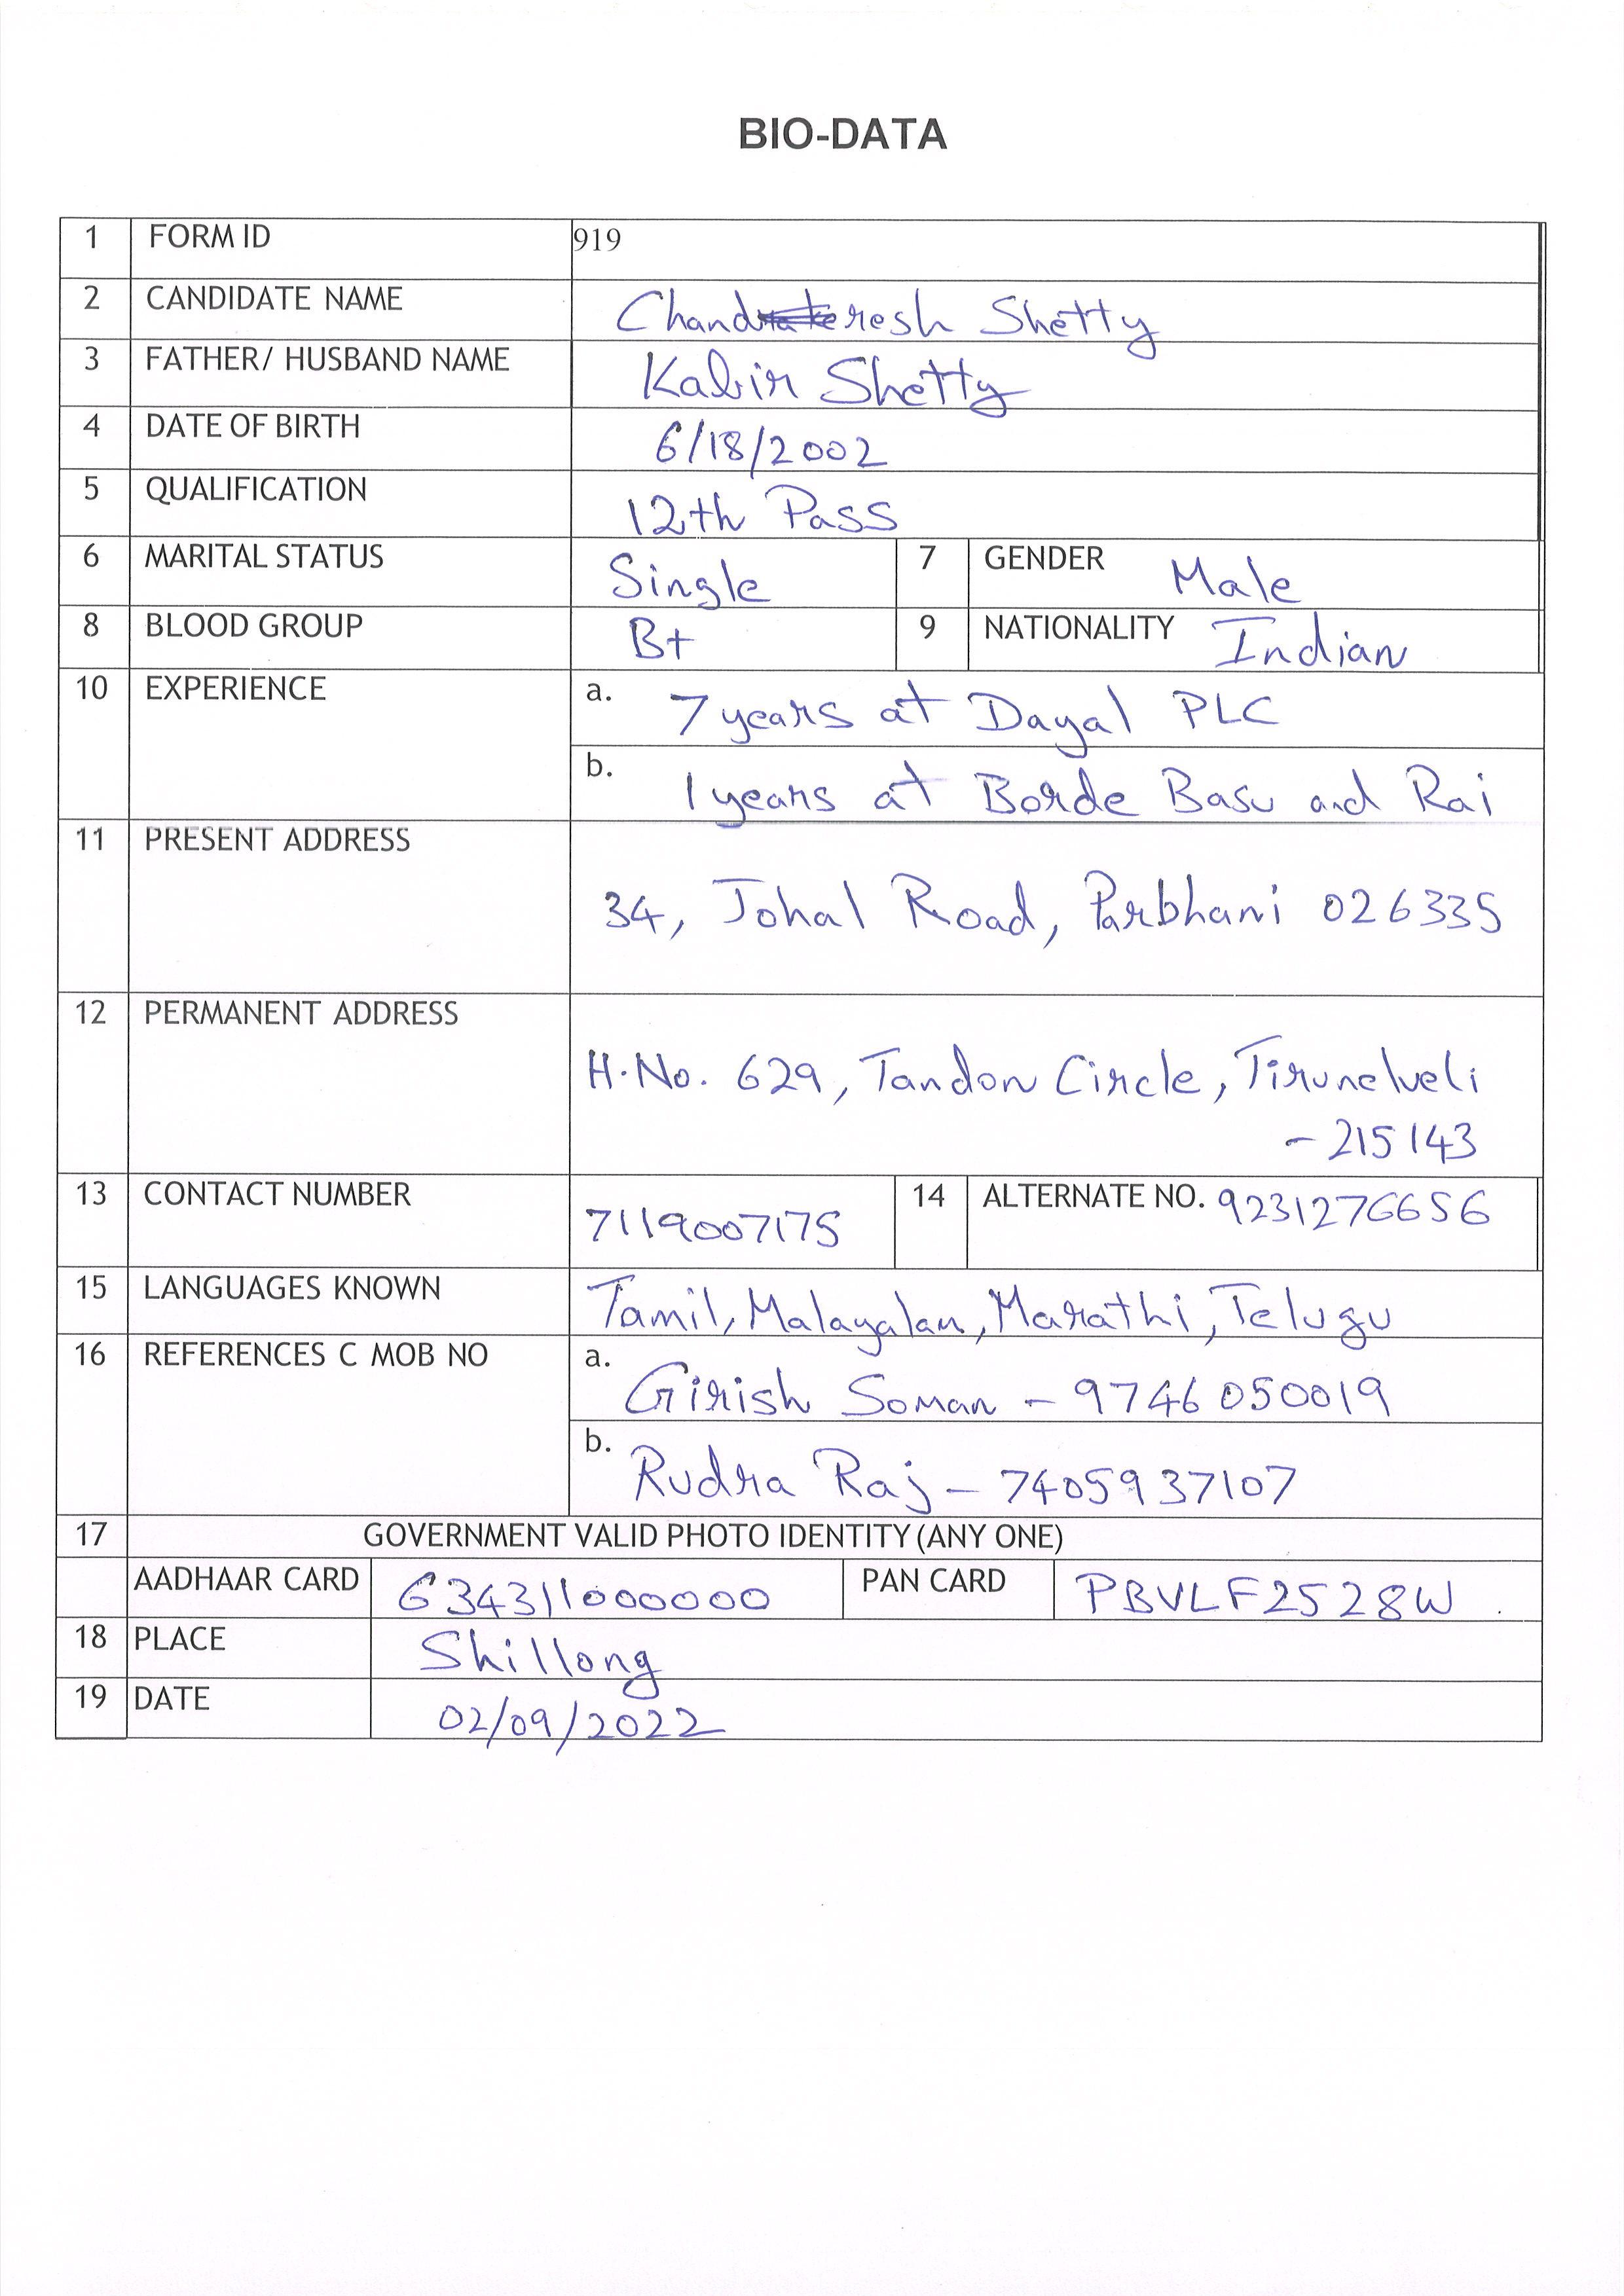 BIO-DATA
1 FORM ID 919
2 CANDIDATE NAME Chanderesh Shetty
3 FATHER/ HUSBAND NAME Kabir Shetty
4 DATE OF BIRTH 6/18/2002
5 QUALIFICATION 12th Pass
6 MARITAL STATUS Single 7 GENDER Male
8 BLOOD GROUP B+ 9 NATIONALITY Indian
10 EXPERIENCE a. 7 years at Dayal PLC
b. 1 years at Borde Basu and Rai
11 PRESENT ADDRESS
34, Johal Road, Parbhani 026335
12 PERMANENT ADDRESS
H.No. 629, Tandon Circle, Tirunelveli
- 215143
13 CONTACT NUMBER 7119007175 14 ALTERNATE NO. 9231276656
15 LANGUAGES KNOWN Tamil, Malayalam, Marathi, Telugu
16 REFERENCES C MOB NO a. Girish Soman - 9746050019
b. Rudra Raj - 7405937107
17 GOVERNMENT VALID PHOTO IDENTITY (ANY ONE)
AADHAAR CARD 634311000000 PAN CARD PBVLF2528W
18 PLACE Shillong
19 DATE 02/09/2022